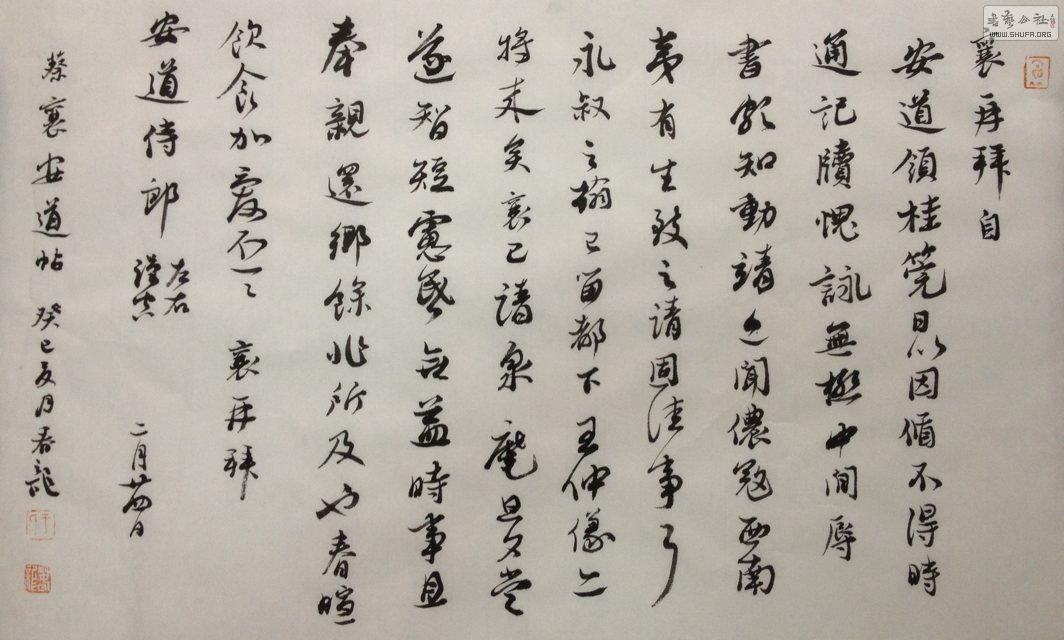 襄再拜自
安道領桂筦日以因循不得時
通記牘愧詠無極中間辱
書頗知動靖近聞儂寇西南
夷有生致之請固佳事了
永叔之𣗳已留都下王仲儀亦
將來矣襄已請泉麾旦夕當
遂智短慮昏無益時事且
奉親還鄉餘非所及也春暄
飲食加愛不一一 襄再拜
安道侍郎左右謹空
二月廿四日
蔡襄安道帖 癸巳夏月春龍
书艺公社
WWW.SHUFA.ORG